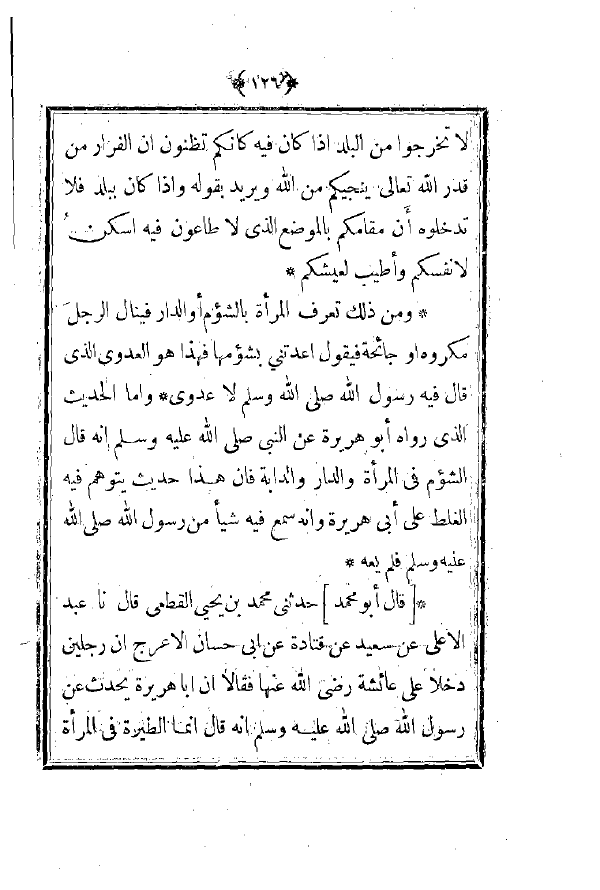 ﴿١٢٦﴾
لا تخرجوا من البلد اذا كان فيه كانكم تظنون ان الفرار من
قدر الله تعالى ينجيكم من الله ويريد بقوله واذا كان ببلد فلا
تدخلوه أن مقامكم بالموضع الذى لا طاعون فيه اسكن
لانفسكم وأطيب لعيشكم *
* ومن ذلك تعرف المرأة بالشؤم أو الدار فينال الرجل
مكروه او جائحة فيقول اعدتني بشؤمها فهذا هو العدوى الذى
قال فيه رسول الله صلى الله وسلم لا عدوى * واما الحديث
الذى رواه أبو هريرة عن النبى صلى الله عليه وسلم إنه قال
الشؤم فى المرأة والدار والدابة فان هذا حديث يتوهم فيه
الغلط على أبى هريرة وانه سمع فيه شيأ من رسول الله صلى الله
عليه وسلم فلم يعه *
* [ قال أبو محمد ] حدثنى محمد بن يحيى القطعى قال نا عبد
الاعلى عن سعيد عن قتادة عن ابى حسان الاعرج ان رجلين
دخلا على عائشة رضى الله عنها فقالا ان ابا هريرة يحدث عن
رسول الله صلى الله عليه وسلم انه قال انما الطيرة فى المرأة